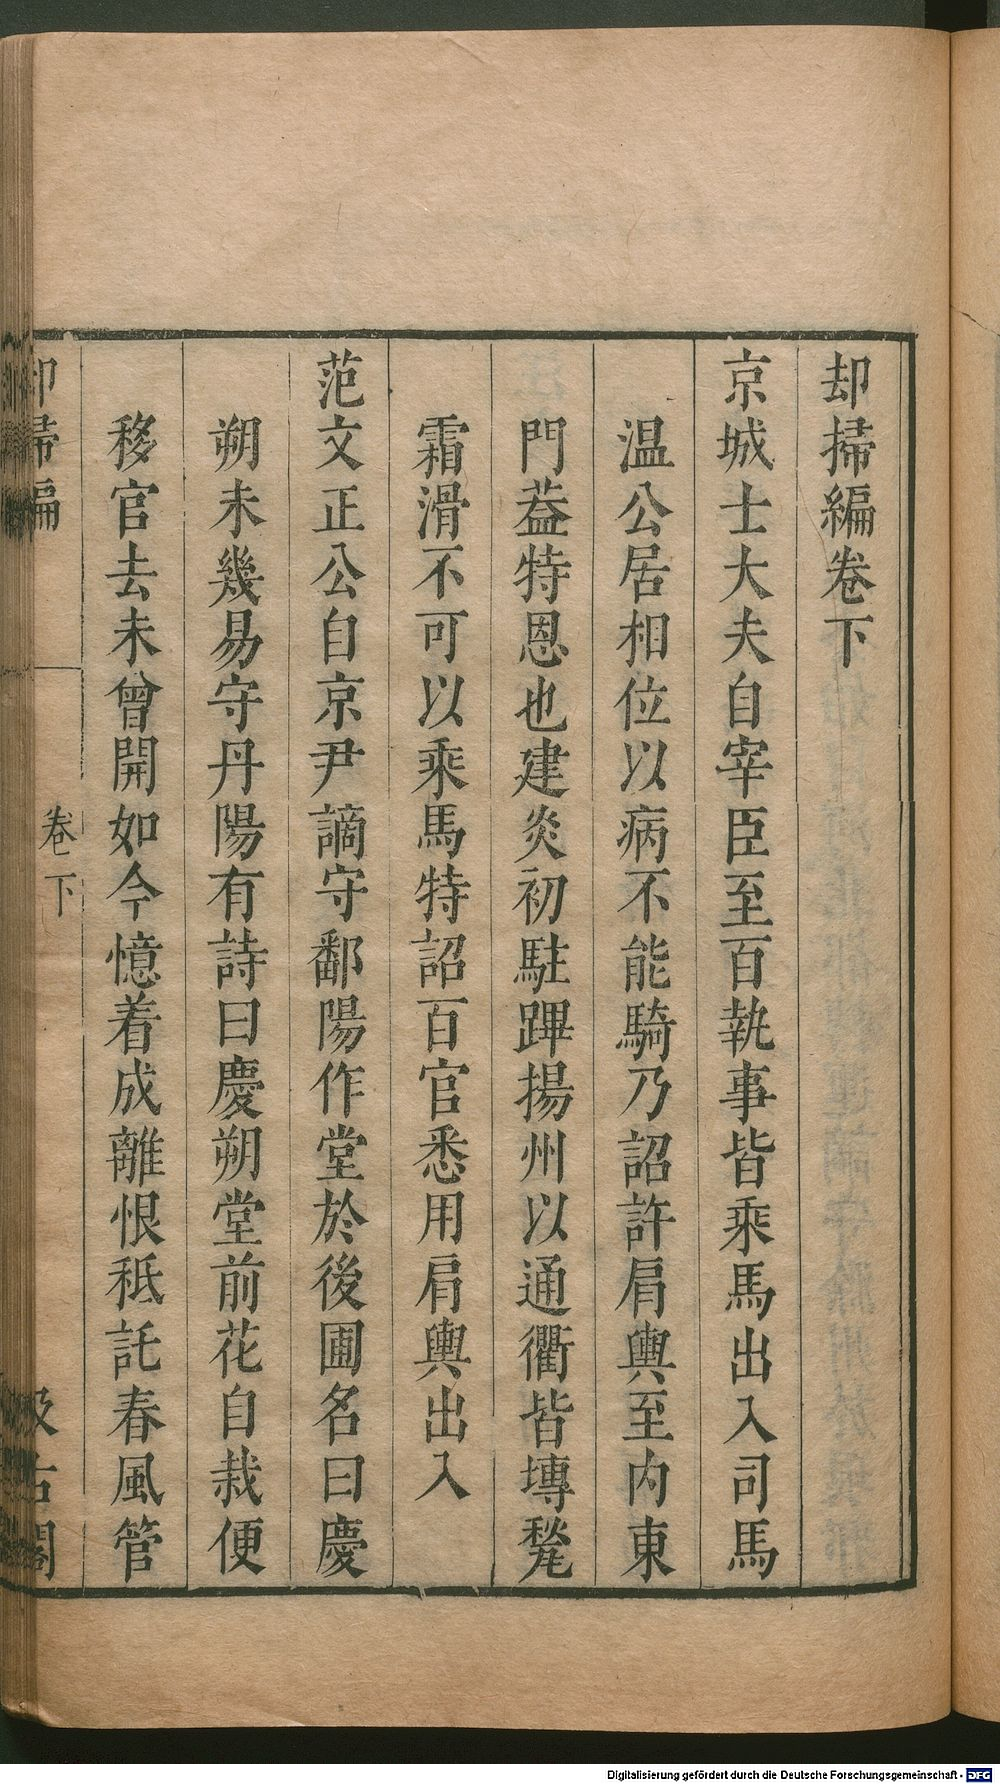 却掃編卷下
京城士大夫自宰臣至百執事皆乘馬出入司馬
温公居相位以病不能騎乃詔許肩輿至内東
門葢特恩也建炎初駐蹕揚州以通衢皆塼甃
霜滑不可以乘馬特詔百官悉用肩輿出入
范文正公自京尹謫守鄱陽作堂於後圃名曰慶
朔未幾易守丹陽有詩曰慶朔堂前花自栽便
移官去未曾開如今憶着成離恨秪託春風管
却掃編 卷下 汲古閣
Digitalisierung gefördert durch die Deutsche Forschungsgemeinschaft - DFG